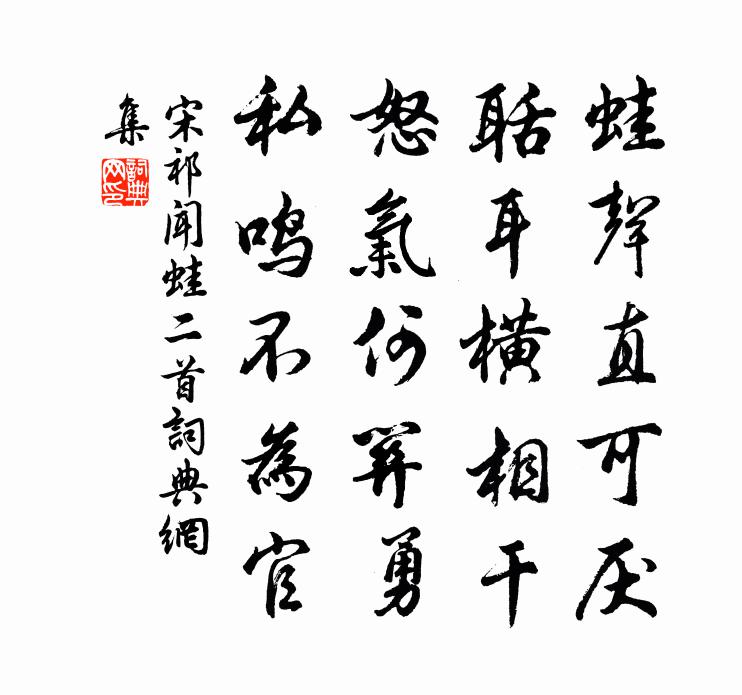 蛙聲直可厌
聒耳橫相干
怒氣何關勇
私鸣不為官
宋祁聞蛙二首詞典網
集
詞典
网印